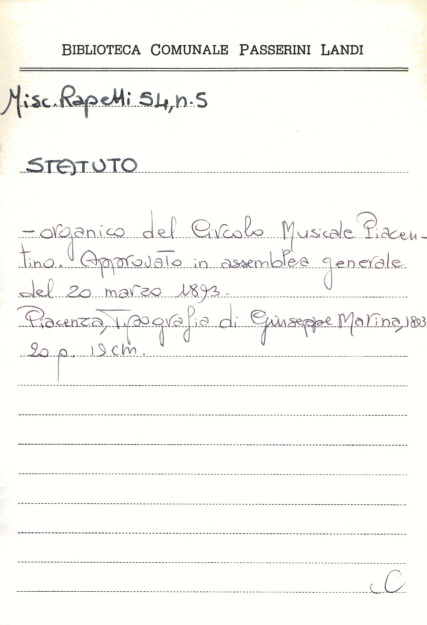 BIBLIOTECA COMUNALE PASSERINI LANDI
Misc. Rapetti 54, n. 5
STATUTO
- organico del Circolo Musicale Piacen-
tino. Approvato in assemblea generale
del 20 marzo 1893.
Piacenza, Tipografia di Giuseppe Marina, 1893
20 p. 19 cm.
C